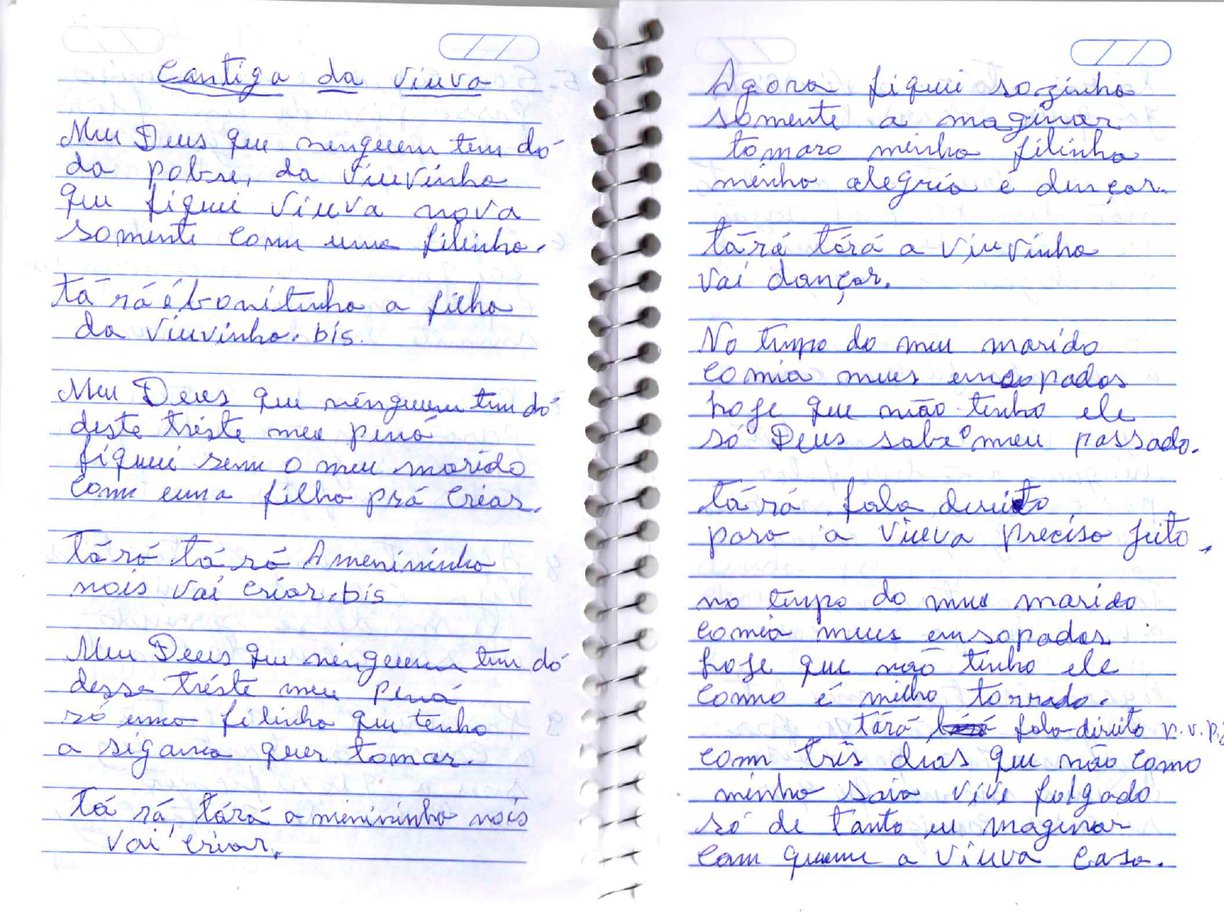 Cantiga da viuva
Meu Deus que ninguem tem dó
da pobre, da viuvinha
que fiquei viuva nova
somente com uma filinha.
tá rá é bonitinha a filha
da viuvinha. bis.
Meu Deus que ninguem tem dó
deste triste meu pená
fiquei sem o meu marido
com uma filha prá criar.
tá rá tá rá A menininha
nois vai criar. bis
Meu Deus que ninguem tem dó
desse triste meu pená
só uma filinha que tenho
a sigana quer tomar.
tá rá, tárá a menininha nois
vai criar.
Agora fiquei sozinha
somente a maginar
tomaro minha filinha
minha alegria é dençar.
tárá tárá a viuvinha
vai dançar.
No tempo do meu marido
comia meus ensopados
hoje que não tenho ele
só Deus sabe o meu passado.
tá rá fala direito
para a viuva precisa jeito.
no tempo do meu marido
comia meus ensopados
hoje que não tinho ele
como é milho torrado.
tárá fala direito v.v.pj
com três dias que não como
minha saia vive folgada
só de tanto eu maginar
com quem a viuva casa.